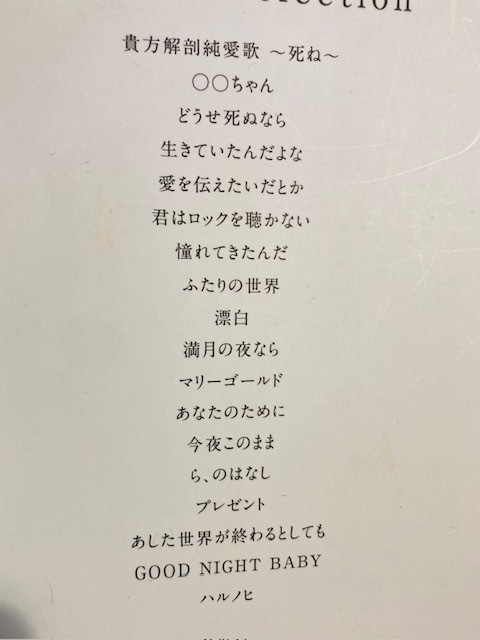 貴方解剖純愛歌 〜死ね〜
〇〇ちゃん
どうせ死ぬなら
生きていたんだよな
愛を伝えたいだとか
君はロックを聴かない
憧れてきたんだ
ふたりの世界
漂白
満月の夜なら
マリーゴールド
あなたのために
今夜このまま
ら、のはなし
プレゼント
あした世界が終わるとしても
GOOD NIGHT BABY
ハルノヒ